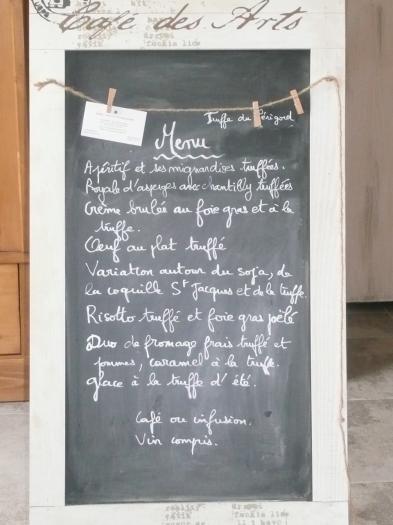 Café des Arts
Truffe du Périgord
Menu
Apéritif et ses mignardises truffées.
Royale d'asperges avec chantilly truffées
Crème brulée au foie gras et à la
truffe.
Œuf au plat truffé
Variation autour du soja, de
la coquille St Jacques et de la truffe.
Risotto truffé et foie gras poêlé
Duo de fromage frais truffé et
pommes, caramel à la truffe.
glace à la truffe d'été.
Café ou infusion.
Vin compris.